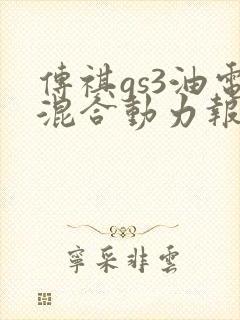 傳祺gs3油電
混合動力報
寧采非雲